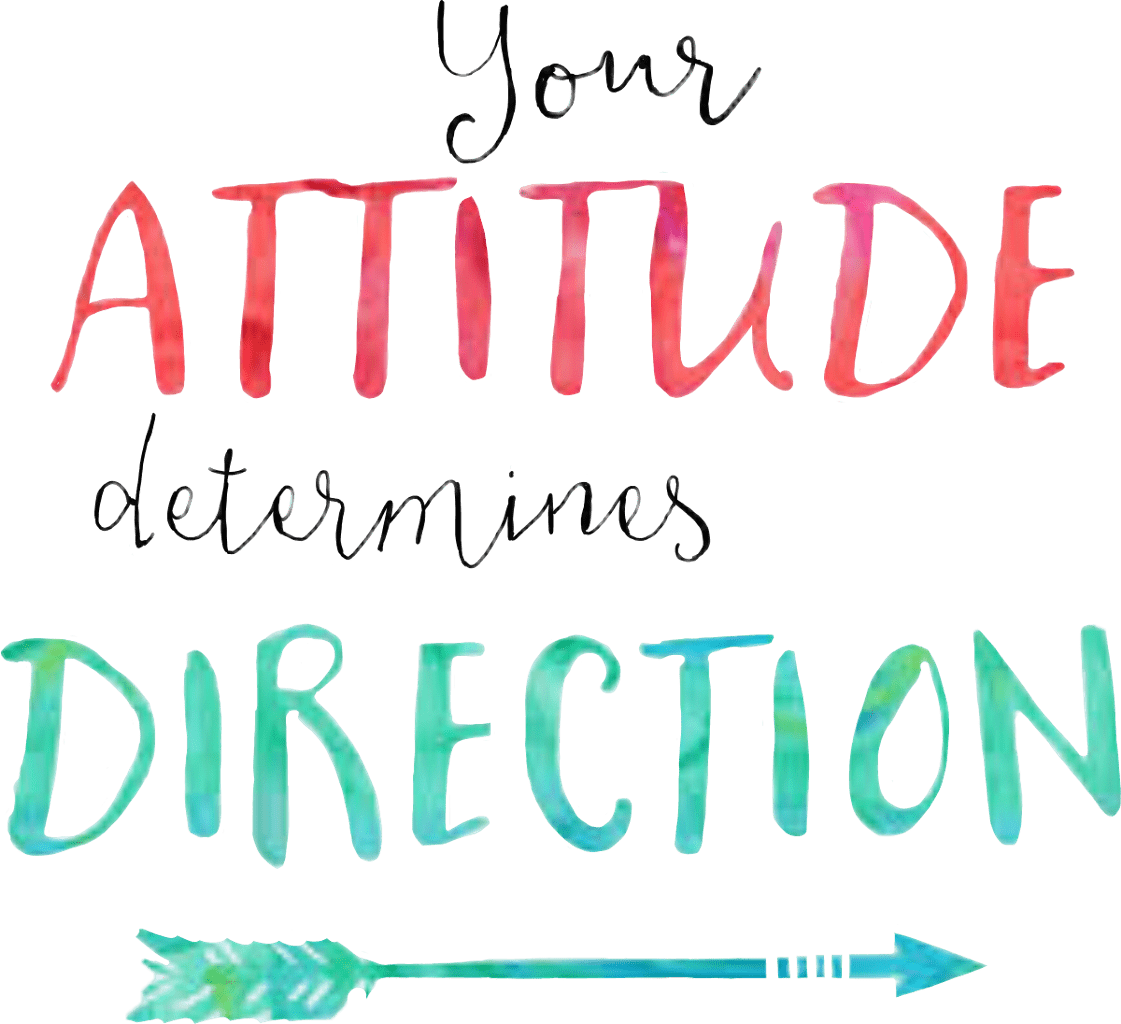 Your
ATTITUDE
determines
DIRECTION